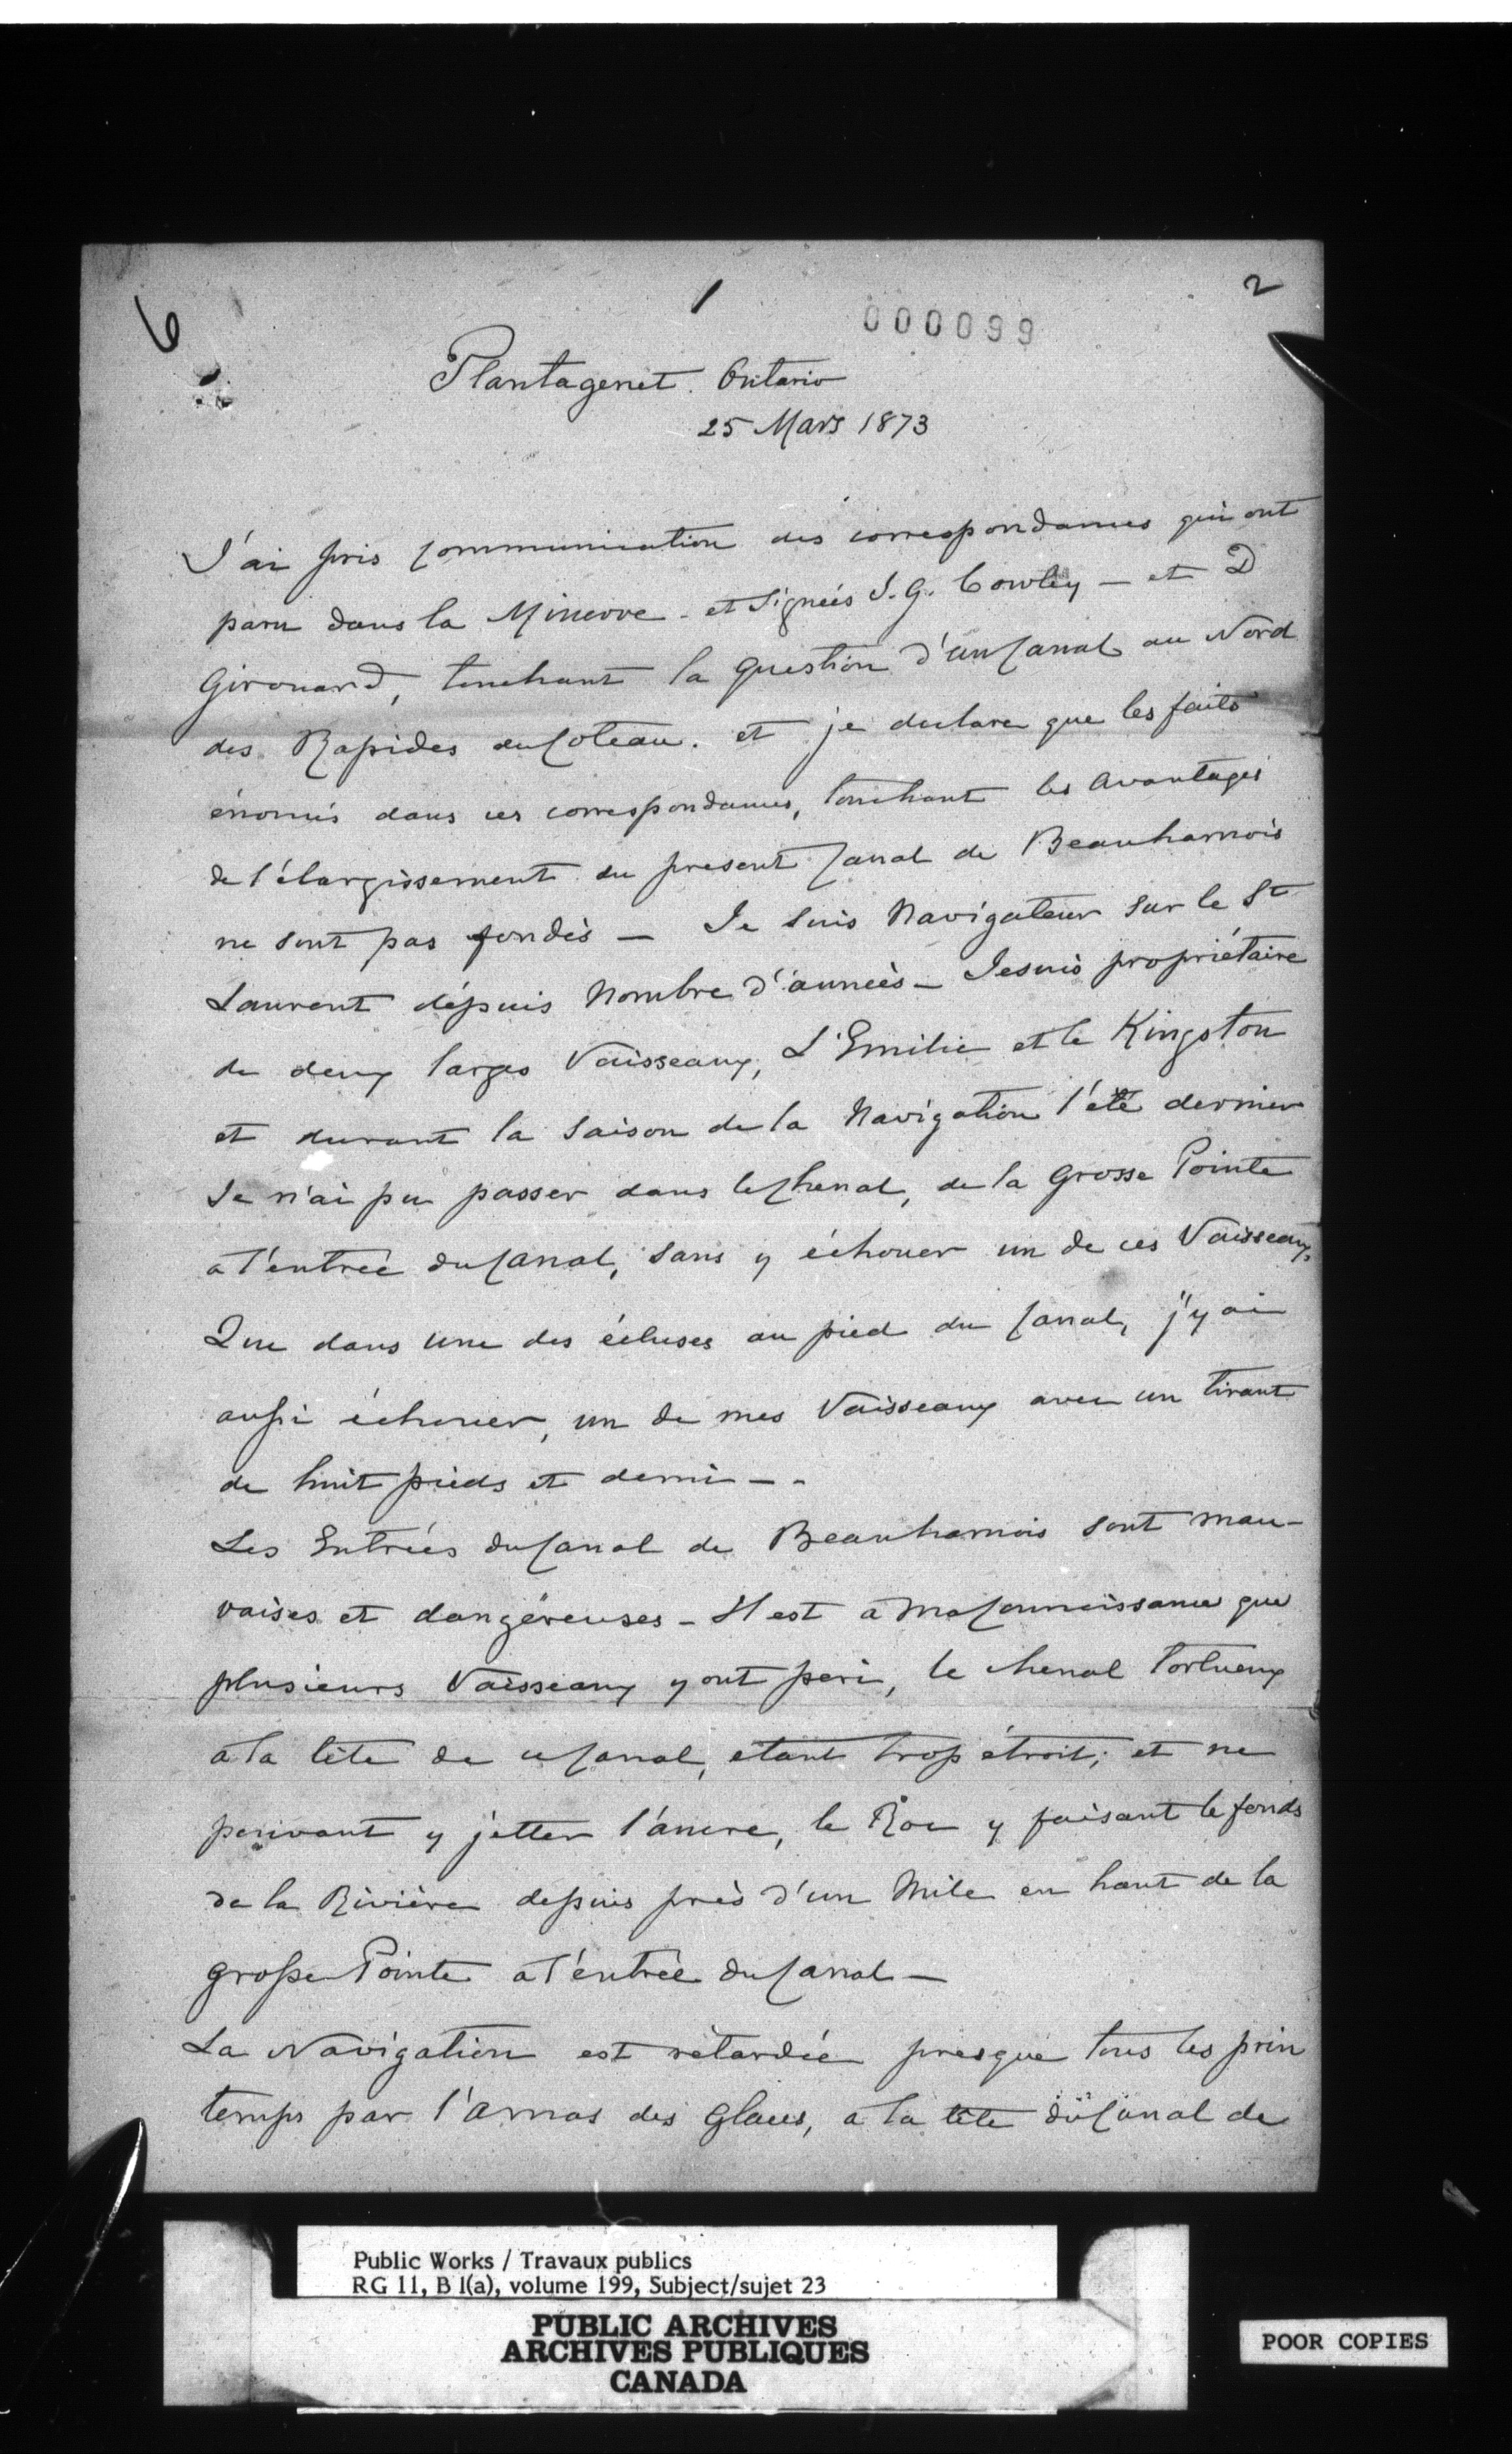 6 1 2
000099
Plantagenet. Ontario
25 Mars 1873
J'ai pris communication des correspondances qui ont
paru dans la Minerve - et signées J. G. Cowley - et D
Girouard, touchant la question d'un Canal au Nord
des Rapides du Coteau. et je declare que les faits
énoncés dans ces correspondances, touchant les Avantages
de l'élargissement du present Canal de Beauharnois
ne sont pas fondés - Je suis Navigateur sur le St
Laurent dépuis Nombre d'années - Je suis propriétaire
de deux larges Vaisseaux, L'Emilie et le Kingston
et durant la Saison de la Navigation l'été dernier
Je n'ai pu passer dans le Chenal, de la Grosse Pointe
a l'entrée du Canal, sans y échouer un de ces Vaisseaux,
Que dans une des écluses au pied du Canal, j'y ai
aussi échouer, un de mes Vaisseaux avec un tirant
de huit pieds et demi - -
Les Entrées du Canal de Beauharnois sont mau-
vaises et dangéreuses - Il est a ma Connaissance que
plusieurs Vaisseaux y ont peri, le chenal tortueux
a la tête de ce Canal, etant trop étroit; et ne
pouvant y jetter l'ancre, le Roc y faisant le fonds
de la Rivière depuis près d'un Mile en haut de la
grosse Pointe a l'éntrée du Canal -
La Navigation est rétardée presque tous les prin
temps par l'Amas des Glaces, a la tête du Canal de
Public Works / Travaux publics
RG 11, B 1(a), volume 199, Subject/sujet 23
PUBLIC ARCHIVES
ARCHIVES PUBLIQUES
CANADA
POOR COPIES